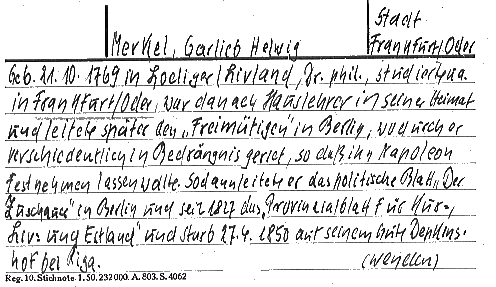 Stadt
Merkel, Garlieb Helwig Frankfurt/Oder
Geb. 21. 10. 1769 in Loediger/Livland, Dr. phil., studierte u.a.
in Frankfurt/Oder, war danach Hauslehrer in seiner Heimat
und leitete später den "Freimütigen" in Berlin, wodurch er
verschiedentlich in Bedrängnis geriet, so daß ihn Napoleon
festnehmen lassen wollte. Sodann leitete er das politische Blatt "Der
Zuschauer" in Berlin und seit 1827 das "Provinzialblatt für Kur-,
Liv- und Estland" und starb 27.4. 1850 auf seinem Gute Depkins-
hof bei Riga. (Wendell)
Reg. 10. Stichnote. 1. 50. 232000. A. 803. S. 4062